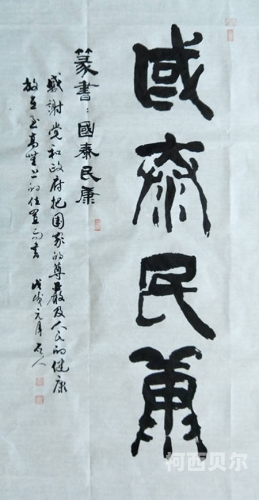 國泰民康
篆書：國泰民康
感謝党和政府把国家的尊嚴及人民的健康
放在至高無上的位置而書 戊戌元月
柯西贝尔